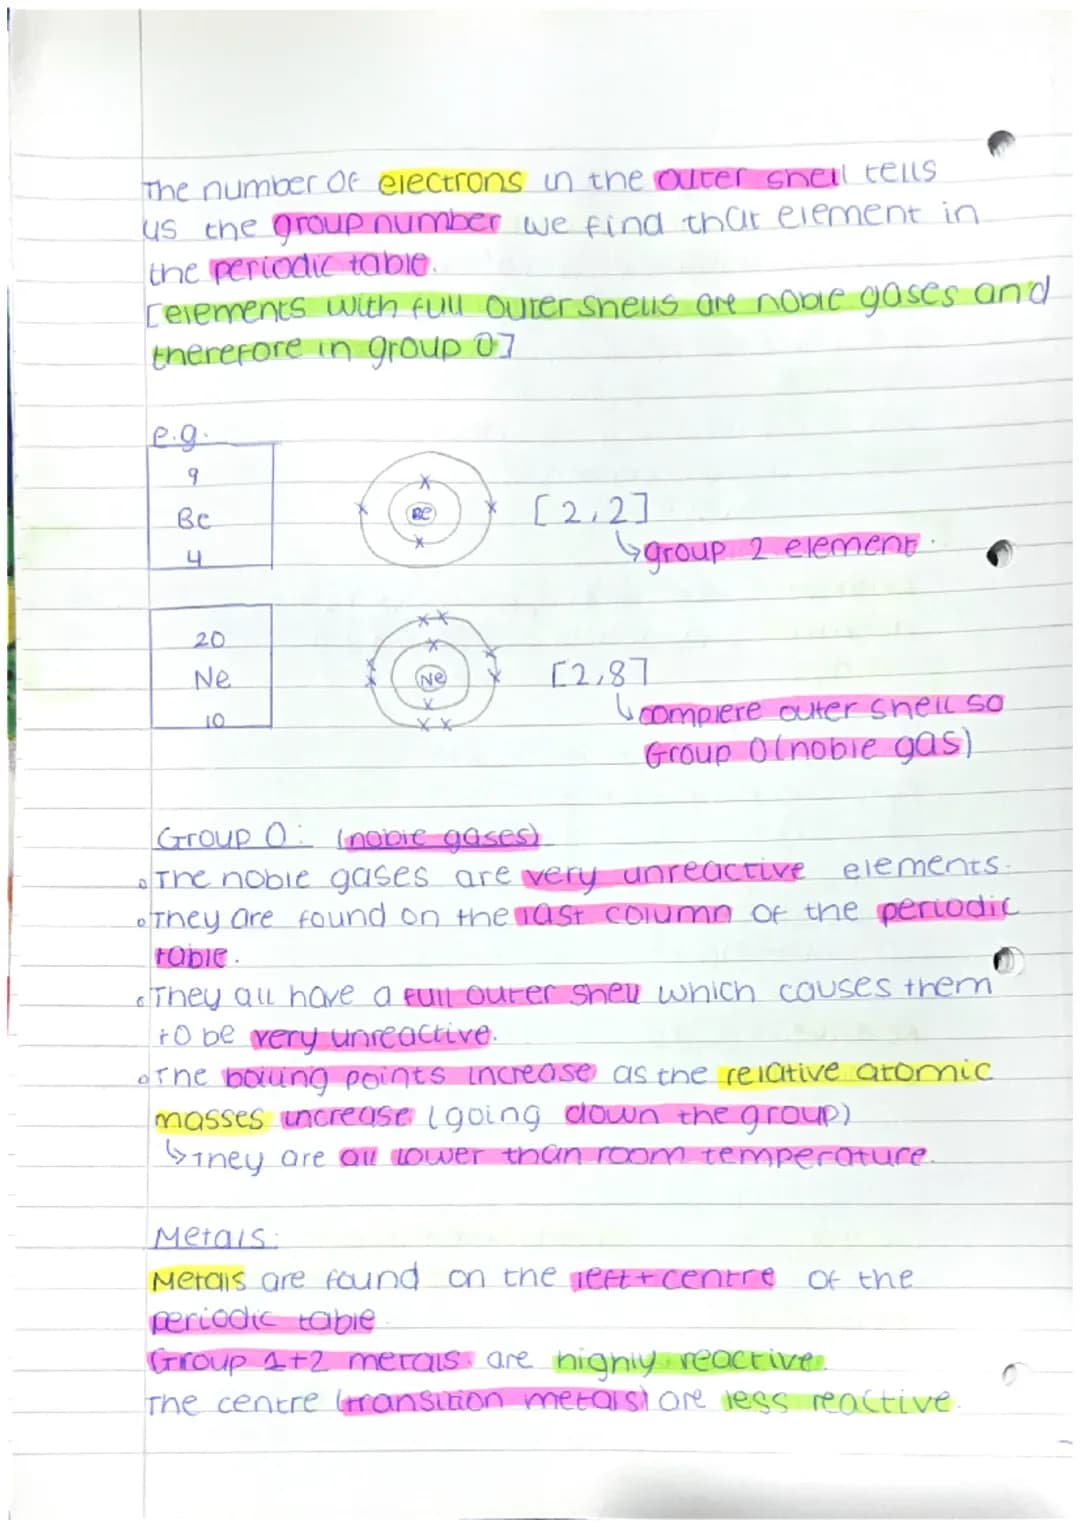 The number of electrons in the outer shell tells
us the group number we find that element in
the periodic table.
[elements with full outer shells are noble gases and
therefore in group 0]
e.g.
9
Be
4
Be
[2,2]
↳group 2 element.
20
Ne
10
Ne
[2,8]
↳complete outer shell so
Group 0 (noble gas)
Group 0: (noble gases)
∘The noble gases are very unreactive elements.
∘They are found on the last column of the periodic
table.
∘They all have a full outer shell which causes them
to be very unreactive.
∘The boiling points increase as the relative atomic
masses increase (going down the group)
↳They are all lower than room temperature.
Metals:
Metals are found on the left + centre of the
periodic table
Group 1+2 metals are highly reactive.
The centre (transition metals) are less reactive.